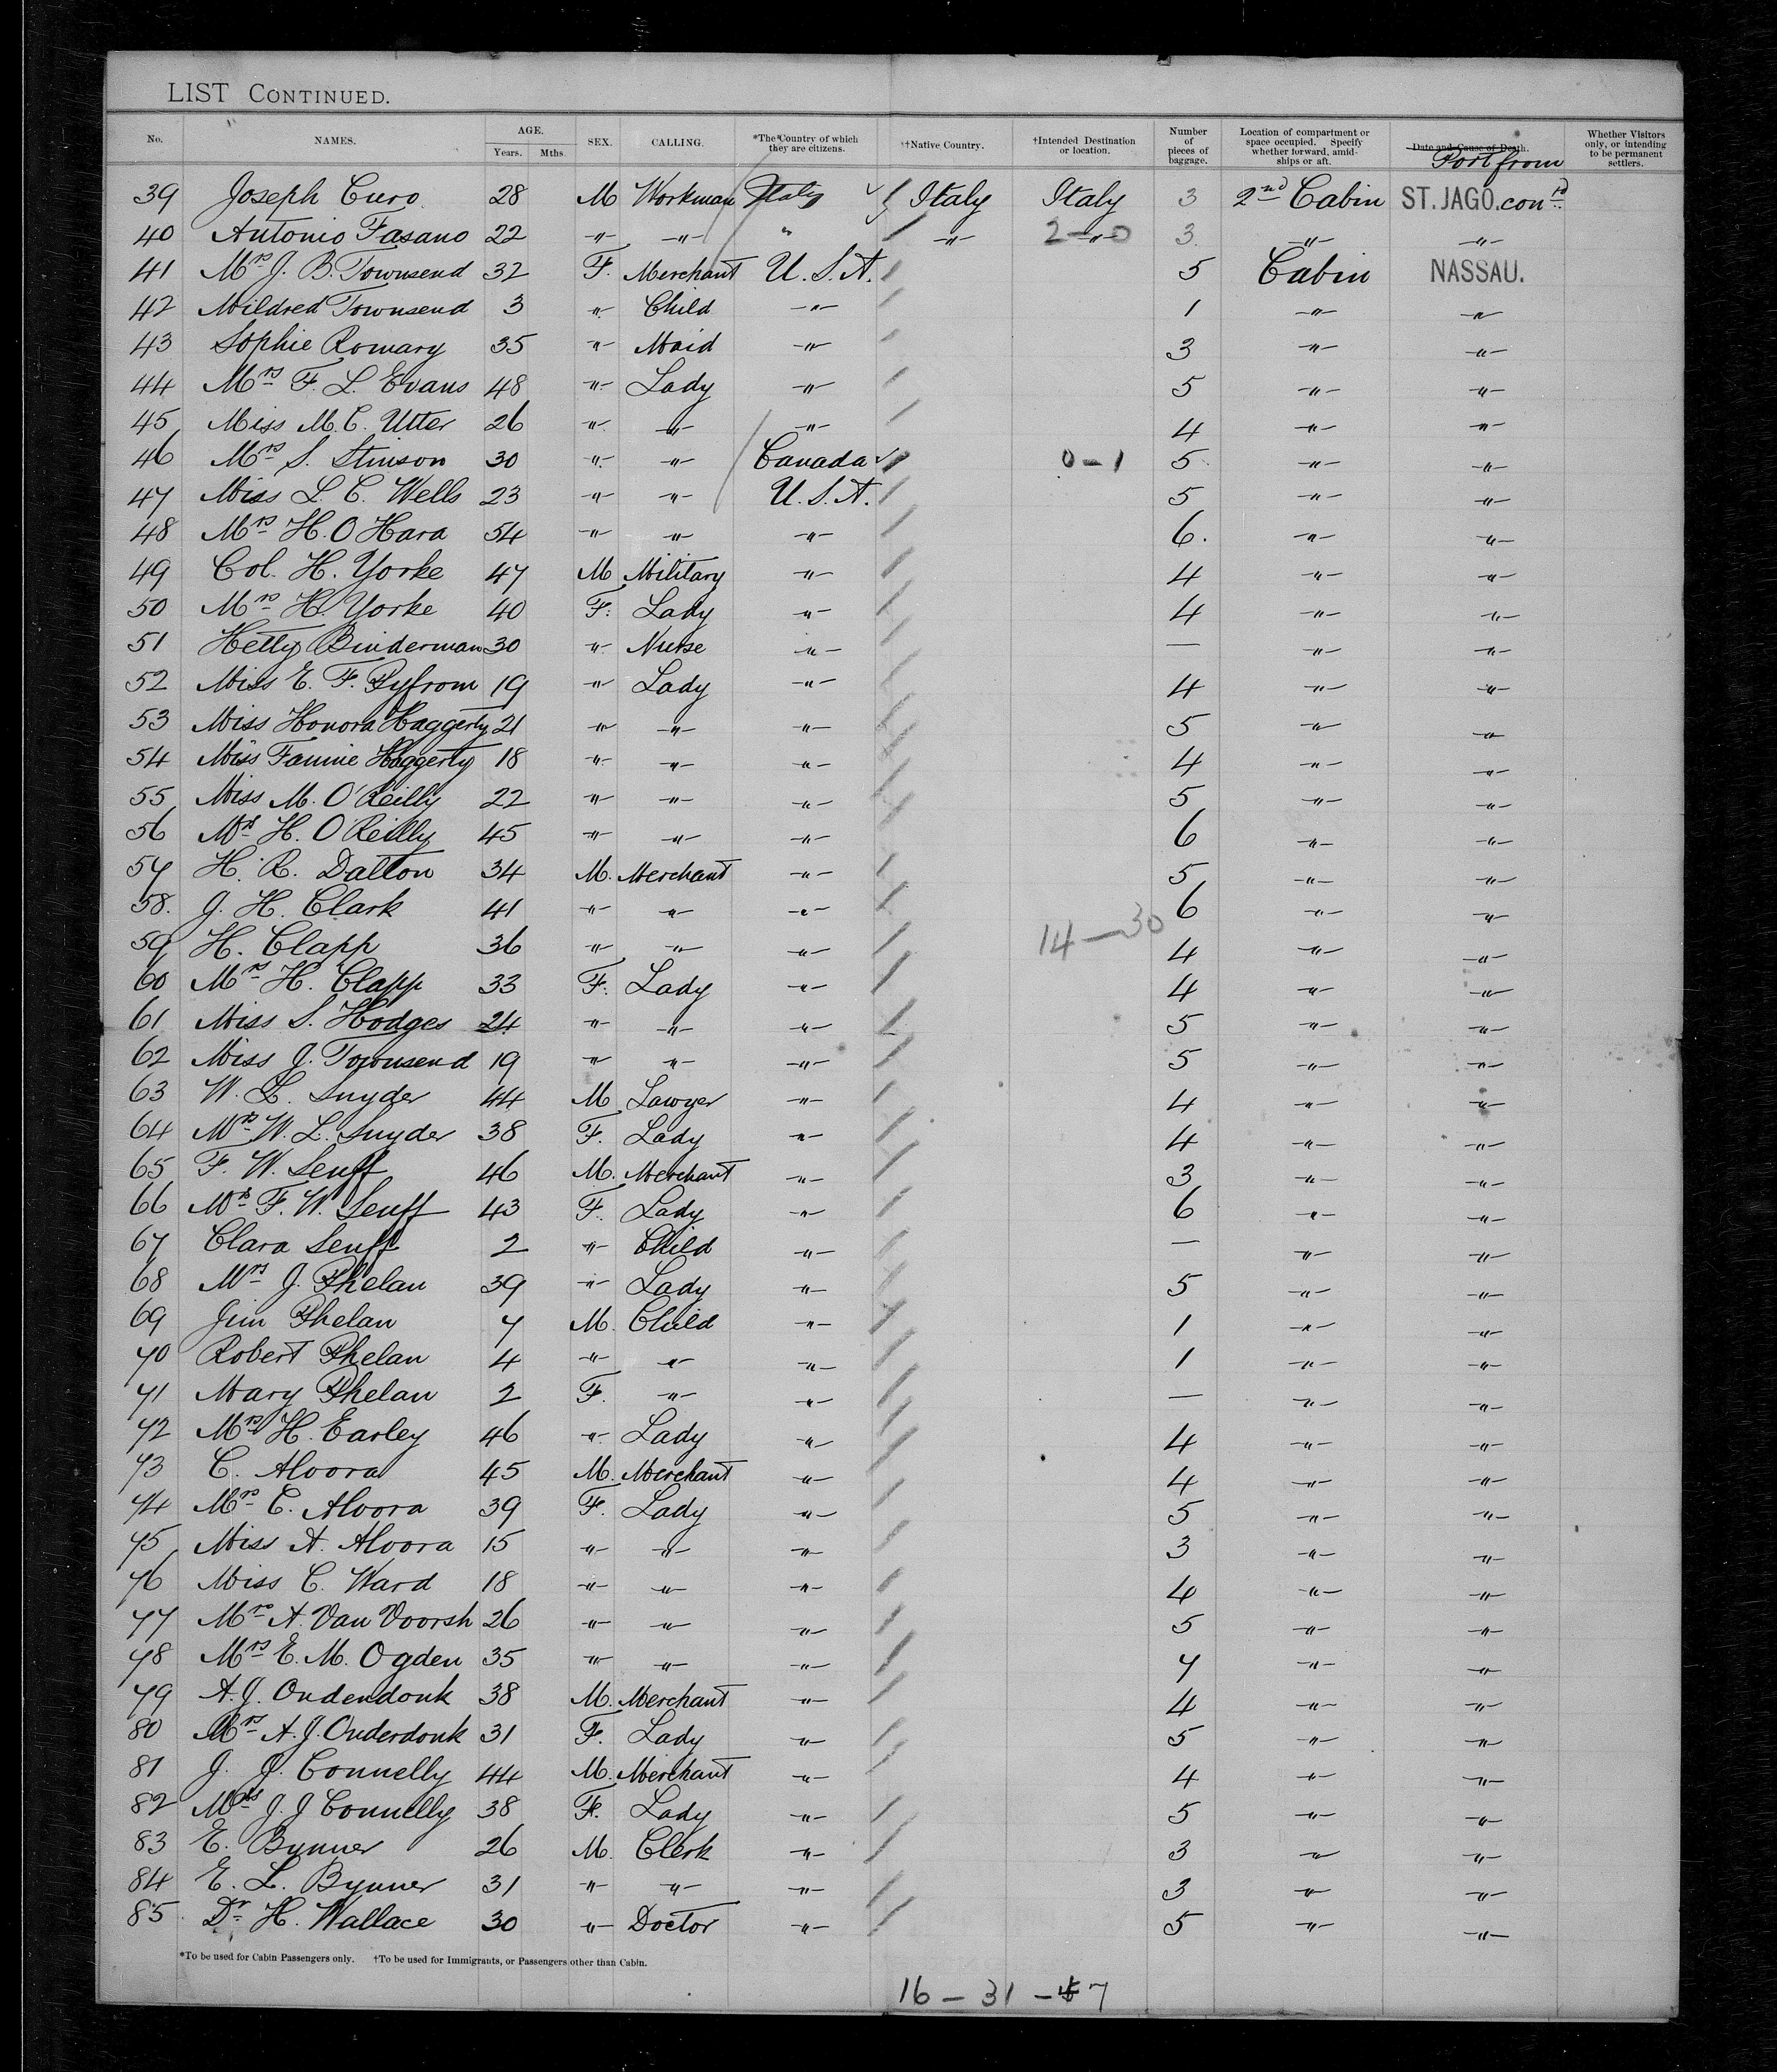 LIST CONTINUED.
No. NAMES. AGE. Years. Mths. SEX. CALLING. *The Country of which they are citizens. †Native Country. †Intended Destination or location. Number of pieces of baggage. Location of compartment or space occupied. Specify whether forward, amidships or aft. Date and Cause of Death. Port from Whether Visitors only, or intending to be permanent settlers.
39 Joseph Curo 28 M Workman Italy Italy Italy 3 2nd Cabin ST. JAGO. contd
40 Antonio Fasano 22 " " " " 2-"-0 3 " "
41 Mrs J. B. Townsend 32 F. Merchant U. S. A. 5 Cabin NASSAU.
42 Mildred Townsend 3 " Child " 1 " "
43 Sophie Romary 35 " Maid " 3 " "
44 Mrs F. L. Evans 48 " Lady " 5 " "
45 Miss M. C. Utter 26 " " " 4 " "
46 Mrs S. Stinson 30 " " Canada 0-1 5 " "
47 Miss L. C. Wells 23 " " U. S. A. 5 " "
48 Mrs H. O Hara 54 " " " 6. " "
49 Col. H. Yorke 47 M Military " 4 " "
50 Mrs H. Yorke 40 F. Lady " 4 " "
51 Hetty Binderman 30 " Nurse " — " "
52 Miss E. F. Pyfrom 19 " Lady " 4 " "
53 Miss Honora Haggerty 21 " " " 5 " "
54 Miss Fannie Haggerty 18 " " " 4 " "
55 Miss M. O'Reilly 22 " " " 5 " "
56 Mrs H. O'Reilly 45 " " " 6 " "
57 H. R. Dalton 34 M. Merchant " 5 " "
58. J. H. Clark 41 " " " 6 " "
59 H. Clapp 36 " " " 14-30 4 " "
60 Mrs H. Clapp 33 F. Lady " 4 " "
61 Miss S. Hodges 24 " " " 5 " "
62 Miss J. Townsend 19 " " " 5 " "
63 W. L. Snyder 44 M Lawyer " 4 " "
64 Mrs W. L. Snyder 38 F. Lady " 4 " "
65 F. W. Senff 46 M. Merchant " 3 " "
66 Mrs F. W. Senff 43 F. Lady " 6 " "
67 Clara Senff 2 " Child " — " "
68 Mrs J. Phelan 39 " Lady " 5 " "
69 Jim Phelan 7 M. Child " 1 " "
70 Robert Phelan 4 " " " 1 " "
71 Mary Phelan 2 F. " " — " "
72 Mrs H. Earley 46 " Lady " 4 " "
73 C. Alvora 45 M. Merchant " 4 " "
74 Mrs C. Alvora 39 F. Lady " 5 " "
75 Miss A. Alvora 15 " " " 3 " "
76 Miss C. Ward 18 " " " 4 " "
77 Mrs A. Van Voorsh 26 " " " 5 " "
78 Mrs E. M. Ogden 35 " " " 7 " "
79 A. J. Ondendonk 38 M. Merchant " 4 " "
80 Mrs A. J. Onderdonk 31 F. Lady " 5 " "
81 J. J. Connelly 44 M. Merchant " 4 " "
82 Mrs J. J Connelly 38 F. Lady " 5 " "
83 E. Bynner 26 M. Clerk " 3 " "
84 E. L. Bynner 31 " " " 3 " "
85 Dr H. Wallace 30 " Doctor " 5 " "
*To be used for Cabin Passengers only. †To be used for Immigrants, or Passengers other than Cabin.
16 - 31 - 47